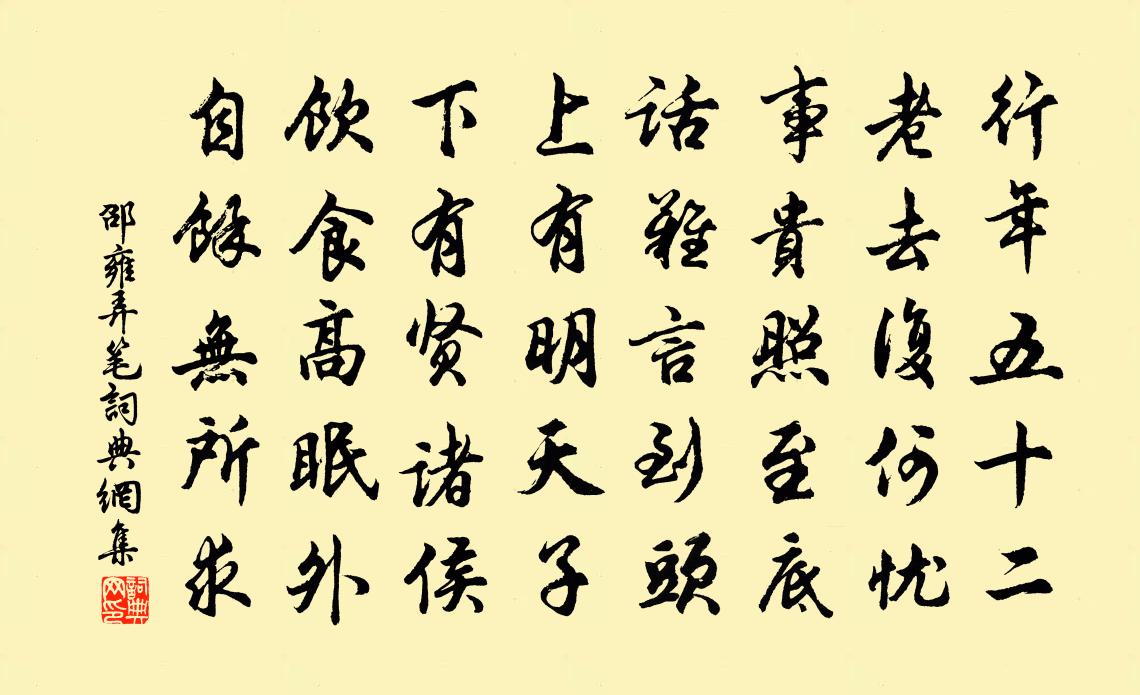 行年五十二
老去復何忧
事貴照至底
话難言到頭
上有明天子
下有贤诸侯
飲食高眠外
自餘無所求
邵雍弄笔詞典網集
詞典网印